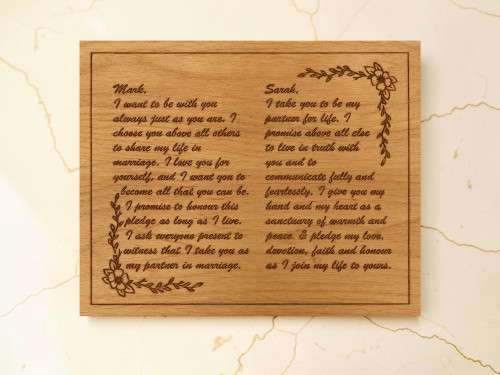 Mark,
I want to be with you
always just as you are. I
choose you above all others
to share my life in
marriage. I love you for
yourself, and I want you to
become all that you can be.
I promise to honour this
pledge as long as I live.
I ask everyone present to
witness that I take you as
my partner in marriage.
Sarah,
I take you to be my
partner for life. I
promise above all else
to live in truth with
you and to
communicate fully and
fearlessly. I give you my
hand and my heart as a
sanctuary of warmth and
peace. & pledge my love,
devotion, faith and honour
as I join my life to yours.